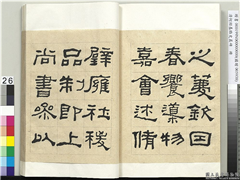 之欽因
春饗導物
嘉會述脩
辟廱社稷
品制即上
尚書參以
26